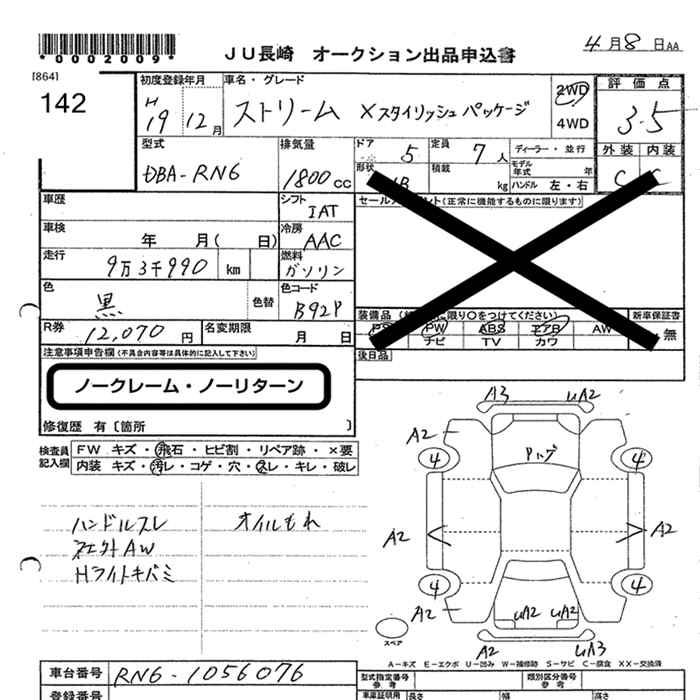 *0002009*
JU長崎 オークション出品申込書
4月8日AA
[864]
142
初度登録年月
H19 12月
車名・グレード
ストリーム Xスタイリッシュパッケージ
2WD
4WD
評価点
3.5
外装 内装
C C
型式
DBA-RN6
排気量
1800cc
ドア
5
定員
7人
ディーラー・並行
形状
積載
kg
モデル年式 年
ハンドル 左・右
車歴
シフト
IAT
車検
年 月( 日)
冷房
AAC
走行
9万3千990 km
燃料
ガソリン
色
黒
色替
色コード
B92P
R券
12,070円
名変期限
月 日
(正常に機能するものに限ります)
装備品
に限り○をつけてください)
新車保証書
PW ABS エアB AW
ナビ TV カワ
無
後日品
注意事項申告欄(不具合内容等は具体的に記入して下さい)
ノークレーム・ノーリターン
修復歴 有〔箇所 〕
検査員記入欄
FW キズ・飛石・ヒビ割・リペア跡・×要
内装 キズ・汚レ・コゲ・穴・スレ・キレ・破レ
ハンドルスレ
オイルもれ
AW
Hライトキバミ
A3 UA2
A2
Pハゲ
4 4
A2 A2
4 4
A2
UA2 UA2
A2 UA3
スペア
A-キズ E-エクボ U-凹み W-補修跡 S-サビ C-腐食 XX-交換済
車台番号
RN6-1056076
型式指定番号
参考
類別区分番号
参考
登録番号
車庫証明用
長さ 幅 高さ